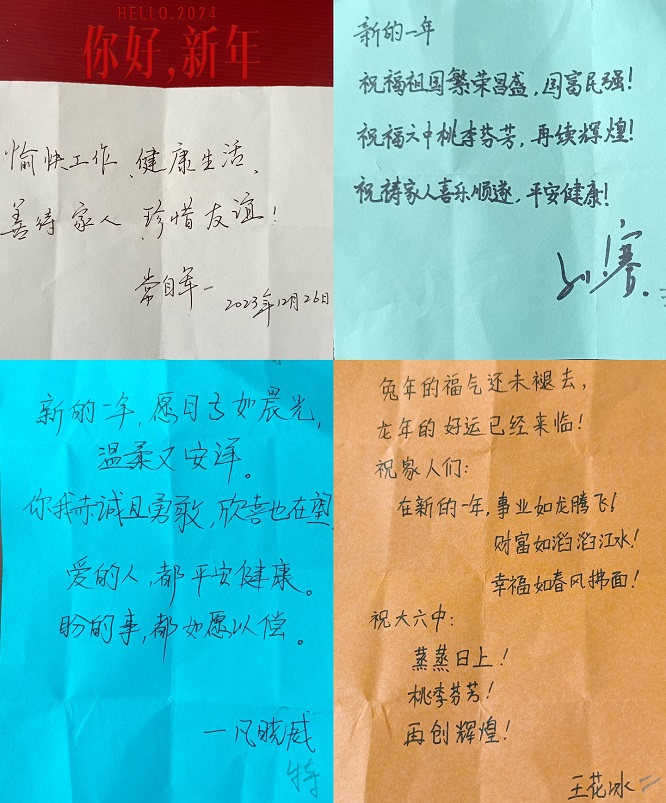 HELLO.2024
你好,新年
愉快工作、健康生活、
善待家人、珍惜友谊!
2023年12月26日
新的一年
祝福祖国繁荣昌盛,国富民强!
祝福六中桃李芬芳,再续辉煌!
祝祷家人喜乐顺遂,平安健康!
新的一年,愿日子如晨光,
温柔又安详。
你我赤诚且勇敢,欣喜也在望
爱的人,都平安健康。
盼的事,都如愿以偿。
一凡晓威
特
兔年的福气还未褪去,
龙年的好运已经来临!
祝家人们:
在新的一年,事业如龙腾飞!
财富如滔滔江水!
幸福如春风拂面!
祝大六中:
蒸蒸日上!
桃李芬芳!
再创辉煌!
王花冰